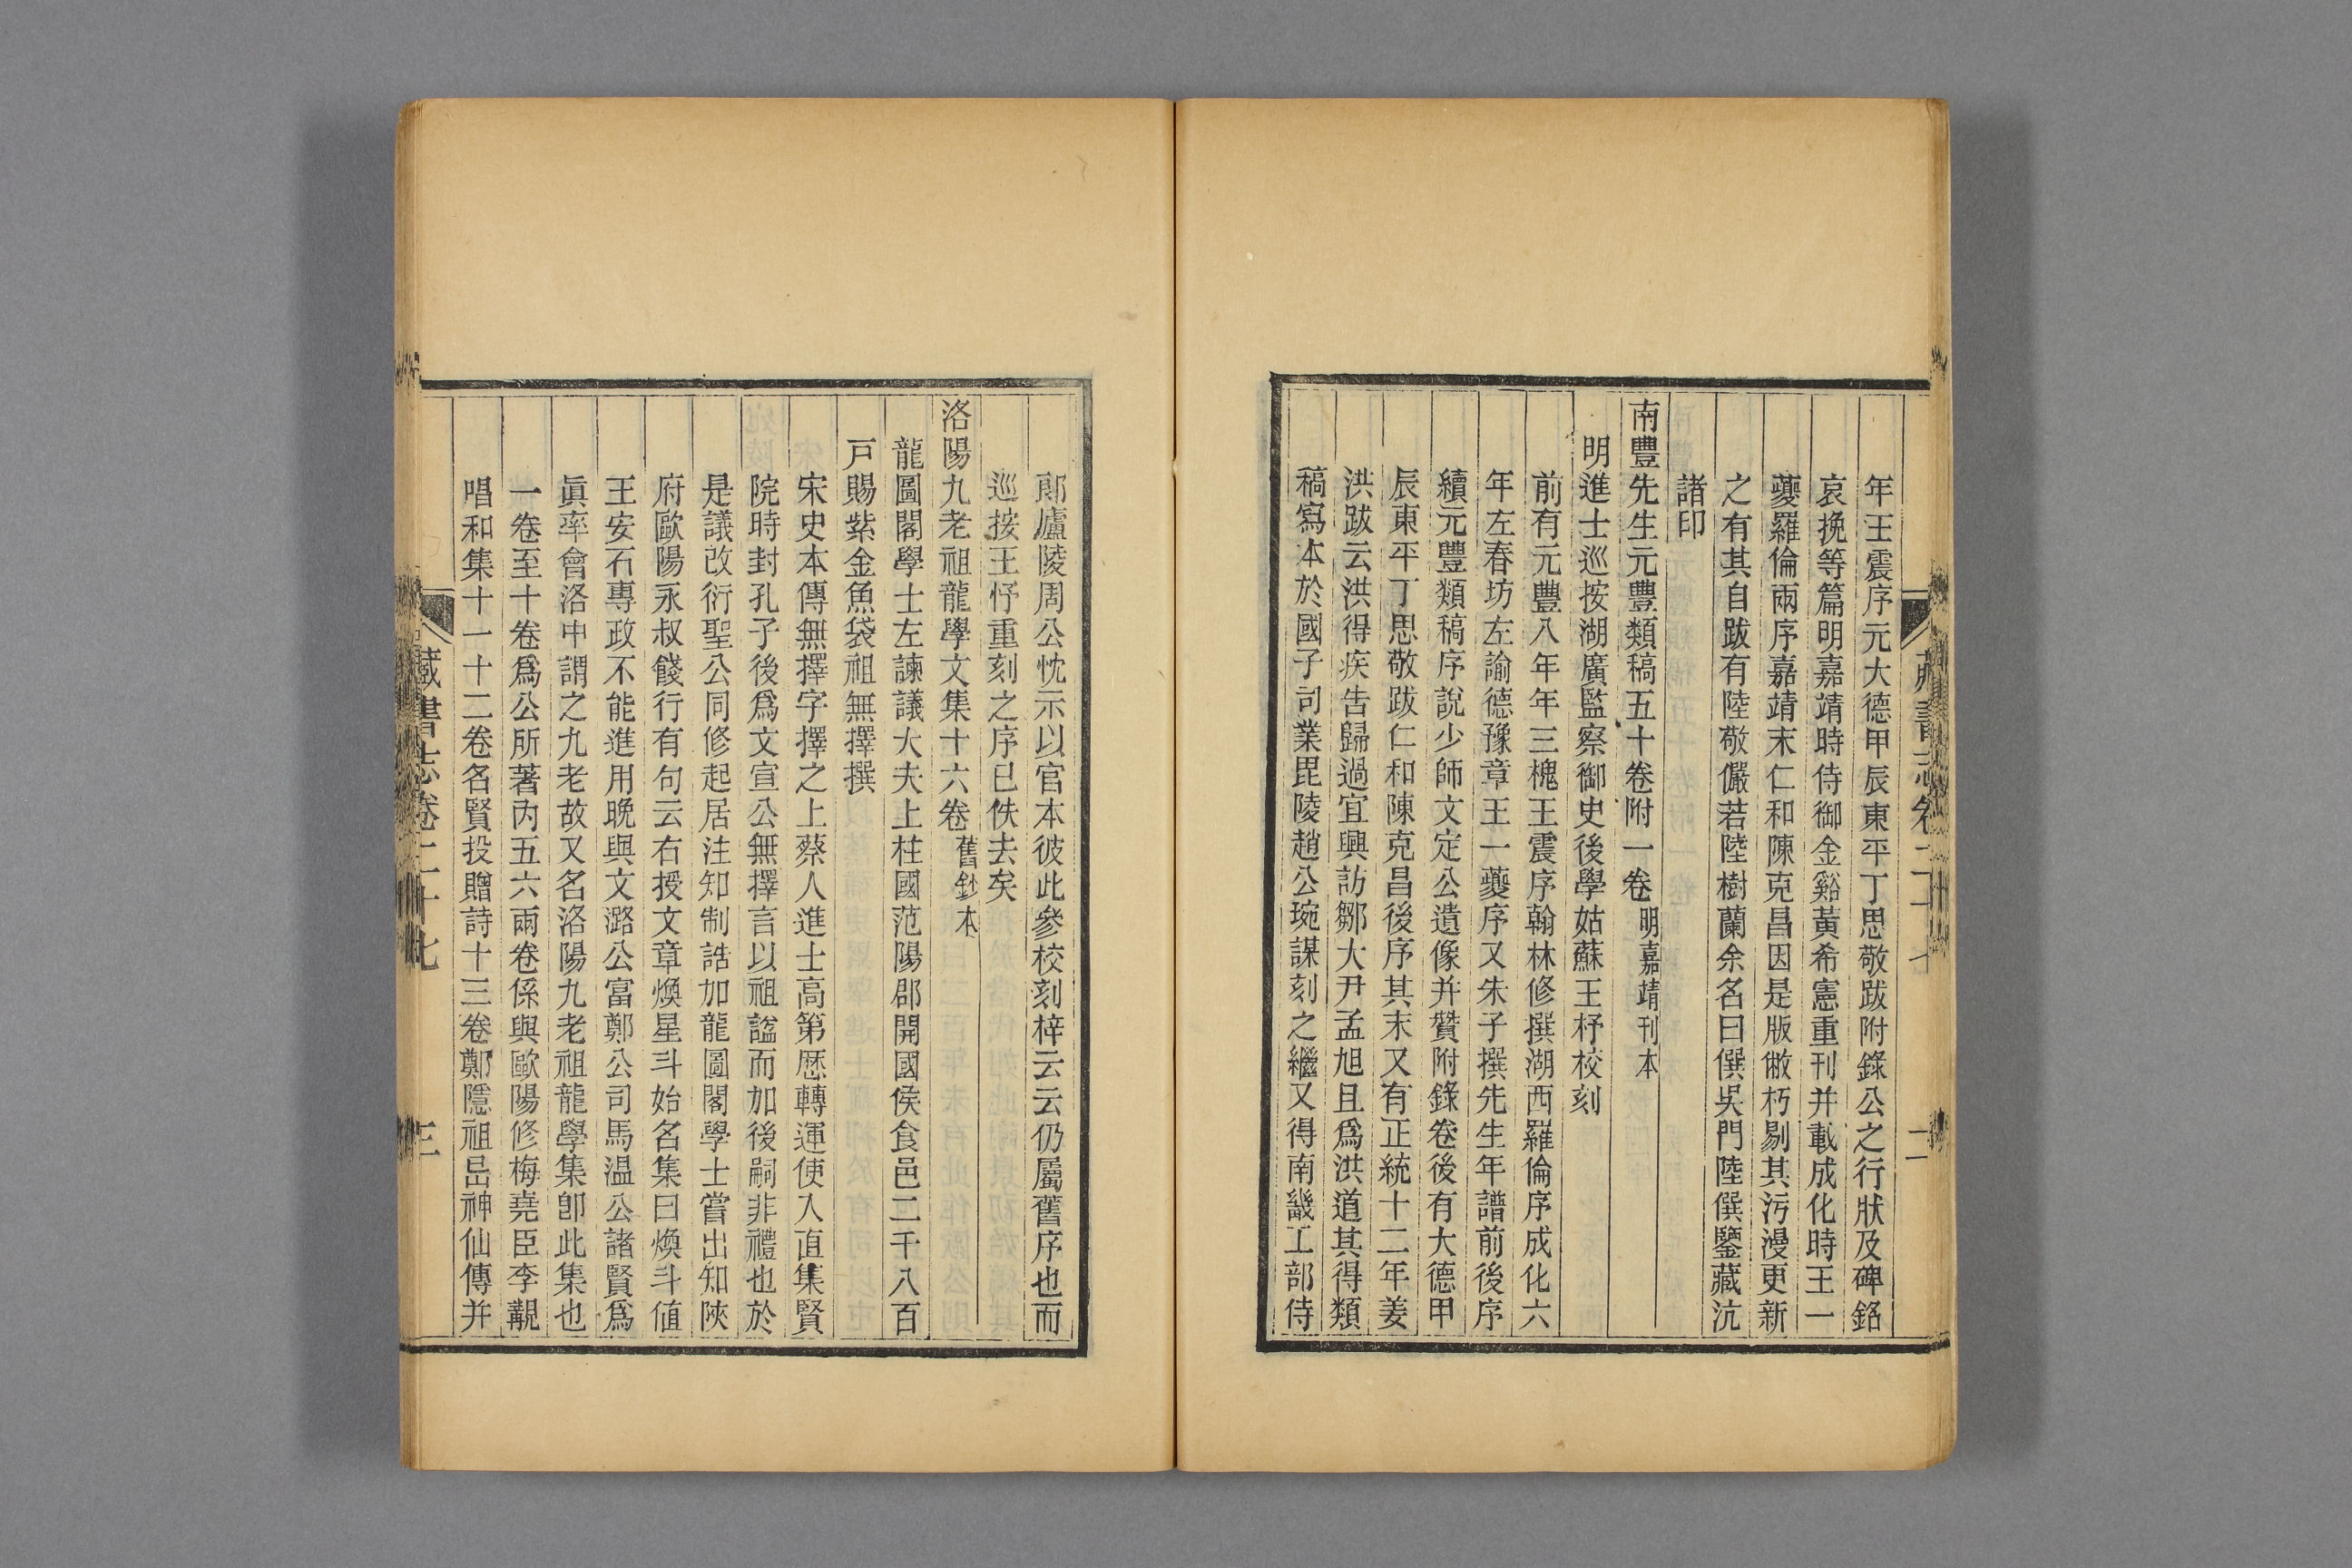 年王震序元大德甲辰東平丁思敬跋附錄公之行狀及碑銘
哀挽等篇明嘉靖時侍御金谿黃希憲重刊并載成化時王一
夔羅倫兩序嘉靖末仁和陳克昌因是版敝朽剔其污漫更新
之有其自跋有陸敬儼若陸樹蘭余名曰僎吳門陸僎鑒藏沆
諸印
南豐先生元豐類稿五十卷附一卷 明嘉靖刊本
明進士巡按湖廣監察御史後學姑蘇王杼校刻
前有元豐八年年三槐王震序翰林修撰湖西羅倫序成化六
年左春坊左諭德豫章王一夔序又朱子撰先生年譜前後序
續元豐類稿序說少師文定公遺像并贊附錄卷後有大德甲
辰東平丁思敬跋仁和陳克昌後序其末又有正統十二年姜
洪跋云洪得疾告歸過宜興訪鄒大尹孟旭且爲洪道其得類
稿寫本於國子司業毘陵趙公琬謀刻之繼又得南畿工部侍
郎廬陵周公忱示以官本彼此參校刻梓云云仍屬舊序也而
巡按王忬重刻之序已佚去矣
洛陽九老祖龍學文集十六卷 舊鈔本
龍圖閣學士左諫議大夫上柱國范陽郡開國侯食邑二千八百
戸賜紫金魚袋祖無擇撰
宋史本傳無擇字擇之上蔡人進士高第歷轉運使入直集賢
院時封孔子後爲文宣公無擇言以祖諡而加後嗣非禮也於
是議改衍聖公同修起居注知制誥加龍圖閣學士嘗出知陝
府歐陽永叔餞行有句云右掖文章煥星斗始名集曰煥斗値
王安石專政不能進用晚與文潞公富鄭公司馬温公諸賢爲
眞率會洛中謂之九老故又名洛陽九老祖龍學集卽此集也
一卷至十卷爲公所著內五六兩卷係與歐陽修梅堯臣李覯
唱和集十一十二卷名賢投贈詩十三卷鄭隱祖岊神仙傳并
藏書志卷二十七
三